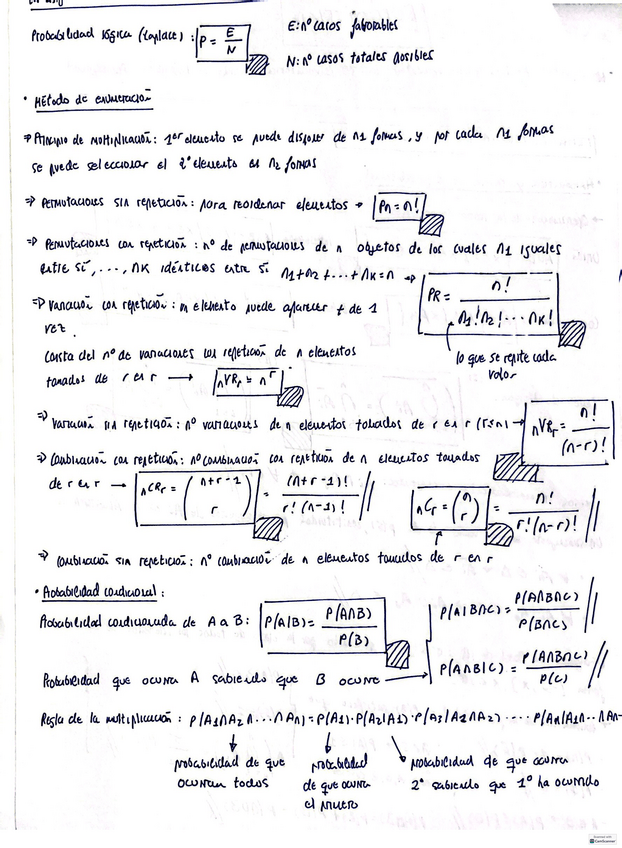 Probabilidad lógica (Laplace) : P = E/N
E: nº casos favorables
N: nº casos totales posibles
• Método de enumeración
⇒ Principio de multiplicación: 1er elemento se puede disponer de n1 formas, y por cada n1 formas
se puede seleccionar el 2º elemento es n2 formas
⇒ Permutaciones sin repetición: para reordenar elementos → Pn = n!
⇒ Permutaciones con repetición: nº de permutaciones de n objetos de los cuales n1 iguales
entre sí, ..., nk idénticos entre sí n1+n2+...+nk=n ⇒ PR = n! / n1! n2! ... nk!
lo que se repite cada valor
⇒ Variación con repetición: m elemento puede aparecer + de 1
vez.
Consta del nº de variaciones con repetición de n elementos
tomados de r en r → nVRr = n^r
⇒ Variación sin repetición: nº variaciones de n elementos tomados de r en r (r≤n) → nVRr = n! / (n-r)!
⇒ Combinación con repetición: nº combinación con repetición de n elementos tomados
de r en r → nCRr = (n+r-1 r) = (n+r-1)! / r!(n-1)! //
nCr = (n r) = n! / r!(n-r)! //
⇒ Combinación sin repetición: nº combinación de n elementos tomados de r en r
• Probabilidad condicional:
Probabilidad condicionada de A a B: P(A|B) = P(A∩B) / P(B)
P(A|B∩C) = P(A∩B∩C) / P(B∩C) //
Probabilidad que ocurra A sabiendo que B ocurre → P(A∩B|C) = P(A∩B∩C) / P(C) //
Regla de la multiplicación: P(A1∩A2∩...∩An) = P(A1)·P(A2|A1)·P(A3|A1∩A2)·...·P(An|A1∩...∩An-
probabilidad de que ocurran todos
probabilidad de que ocurra el primero
probabilidad de que ocurra 2º sabiendo que 1º ha ocurrido
CamScanner